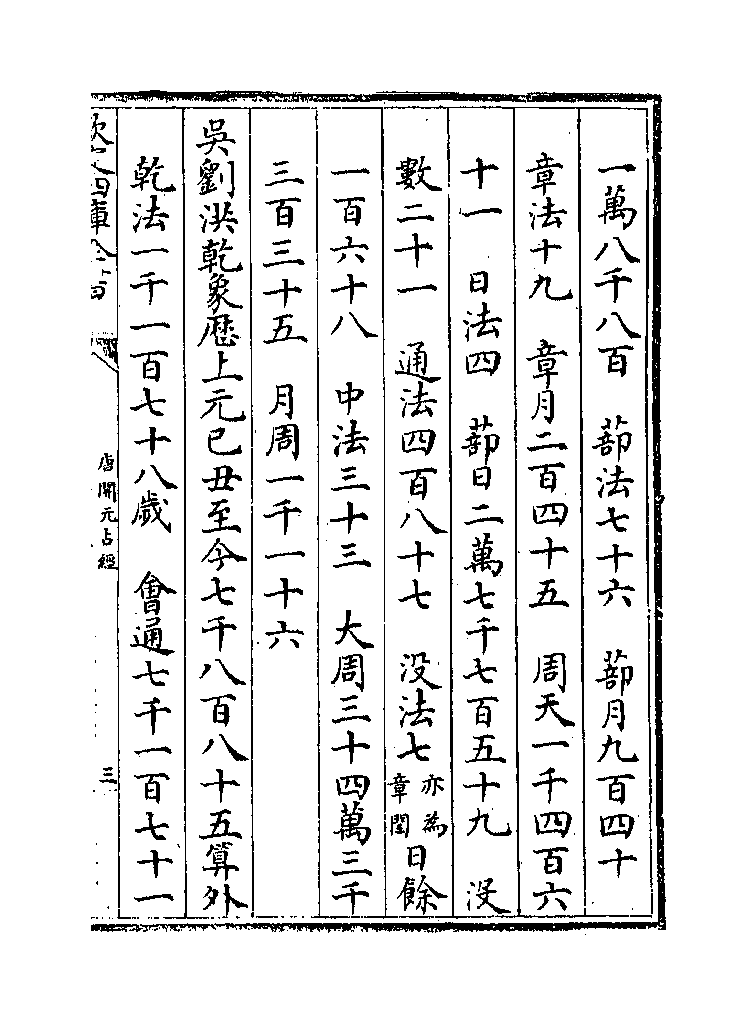 一萬八千八百　蔀法七十六　蔀月九百四十
章法十九　章月二百四十五　周天一千四百六
十一　日法四　蔀日二萬七千七百五十九　沒
數二十一　通法四百八十七　沒法七亦為章閏日餘
一百六十八　中法三十三　大周三十四萬三千
三百三十五　月周一千一十六
吳劉洪乾象歷上元己丑至今七千八百八十五算外
乾法一千一百七十八歲　會通七千一百七十一
欽定四庫全書
唐開元占經
三